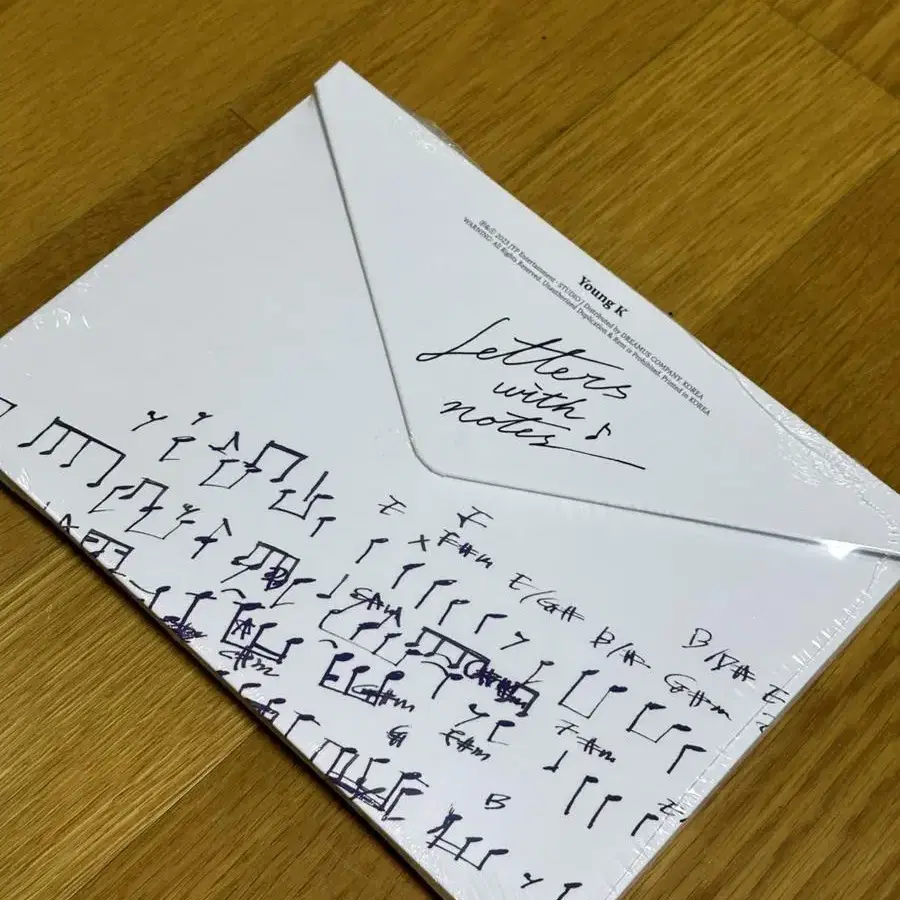 ℗&© 2023 JYP Entertainment · STUDIO J Distributed by DREAMUS COMPANY KOREA
WARNING: All Rights Reserved. Unauthorized Duplication & Rent is Prohibited. Printed in KOREA
Young K
Letters
with
notes
E
F#m
E/G#
B/A#
B/D#
E
G#m
G#m
C#m
G#m
F#m
F#m
B